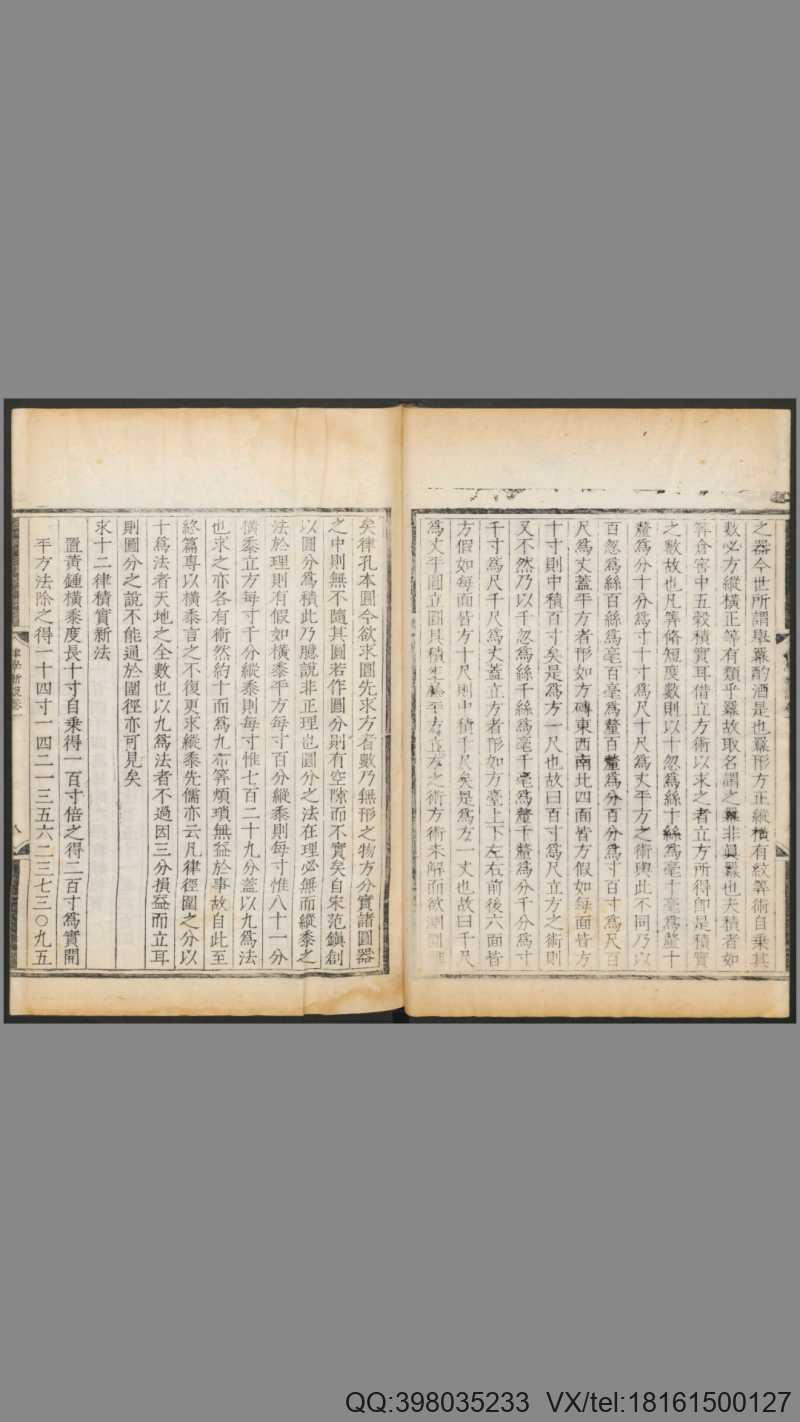 之器今世所謂舉羃酌酒是也羃形方正縱橫有紋筭術自乗其
數必方縱橫正等有類乎羃故取名謂之羃非眞羃也夫積者如
筭倉窖中五穀積實耳借立方術以求之者立方所得卽是積實
之數故也凡筭脩短度數則以十忽爲絲十絲爲毫十毫爲釐十
釐爲分十分爲寸十寸爲尺十尺爲丈平方之術與此不同乃以
百忽爲絲百絲爲毫百毫爲釐百釐爲分百分爲寸百寸爲尺百
尺爲丈蓋平方者形如方磚東西南北四面皆方假如每面皆方
十寸則中積百寸矣是爲方一尺也故曰百寸爲尺立方之術則
又不然乃以千忽爲絲千絲爲毫千毫爲釐千釐爲分千分爲寸
千寸爲尺千尺爲丈蓋立方者形如方臺上下左右前後六面皆
方假如每面皆方十尺則中積千尺矣是爲方一丈也故曰千尺
爲丈平圓立圓其積生於平方立方之術方術未解而欲測圓難
矣律孔本圓今欲求圓先求方者數乃無形之物方分實諸圓器
之中則無不隨其圓若作圓分則有空隙而不實矣自宋范鎭創
以圓分爲積此乃臆說非正理也圓分之法在理必無而縱黍之
法於理則有假如橫黍平方每寸百分縱黍則每寸惟八十一分
橫黍立方每寸千分縱黍則每寸惟七百二十九分蓋以九爲法
也求之亦各有術然約十而爲九布筭煩瑣無益於事故自此至
終篇專以橫黍言之不復更求縱黍先儒亦云凡律徑圍之分以
十爲法者天地之全數也以九爲法者不過因三分損益而立耳
則圓分之說不能通於圍徑亦可見矣
求十二律積實新法
置黃鍾橫黍度長十寸自乗得一百寸倍之得二百寸爲實開
平方法除之得一十四寸一四二一三五六二三七三〇九五
律學新說卷一
八
QQ:398035233 VX/tel:18161500127